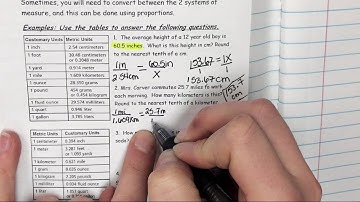 Sometimes, you will need to convert between the 2 systems of
measure, and this can be done using proportions.
Examples: Use the tables to answer the following questions.
Customary Units Metric Units
1 inch 2.54 centimeters
1 foot 30.48 centimeters
or 0.3048 meter
1 yard 0.914 meter
1 mile 1.609 kilometers
1 ounce 28.350 grams
1 pound 454 grams
or 0.454 kilogram
1 fluid ounce 29.574 milliliters
1 quart 0.946 liter
1 gallon 3.785 liters
1. The average height of a 12 year old boy is
60.5 inches. What is this height in cm? Round
to the nearest tenth of a cm.
1in = 60.5in 153.67 = 1X
2.54cm X 1 1
153.67cm
153.7
cm
2. Mrs. Carver commutes 25.7 miles to work
each morning. How many kilometers is this?
Round to the nearest tenth of a kilometer.
1mi = 25.7m
1.609km
3. How
soda?
Metric Units Customary Units
1 centimeter 0.394 inch
1 meter 3.281 feet
or 1.093 yards
1 kilometer 0.621 mile
1 gram 0.035 ounce
1 kilogram 2.205 pounds
1 milliliter 0.034 fluid ounce